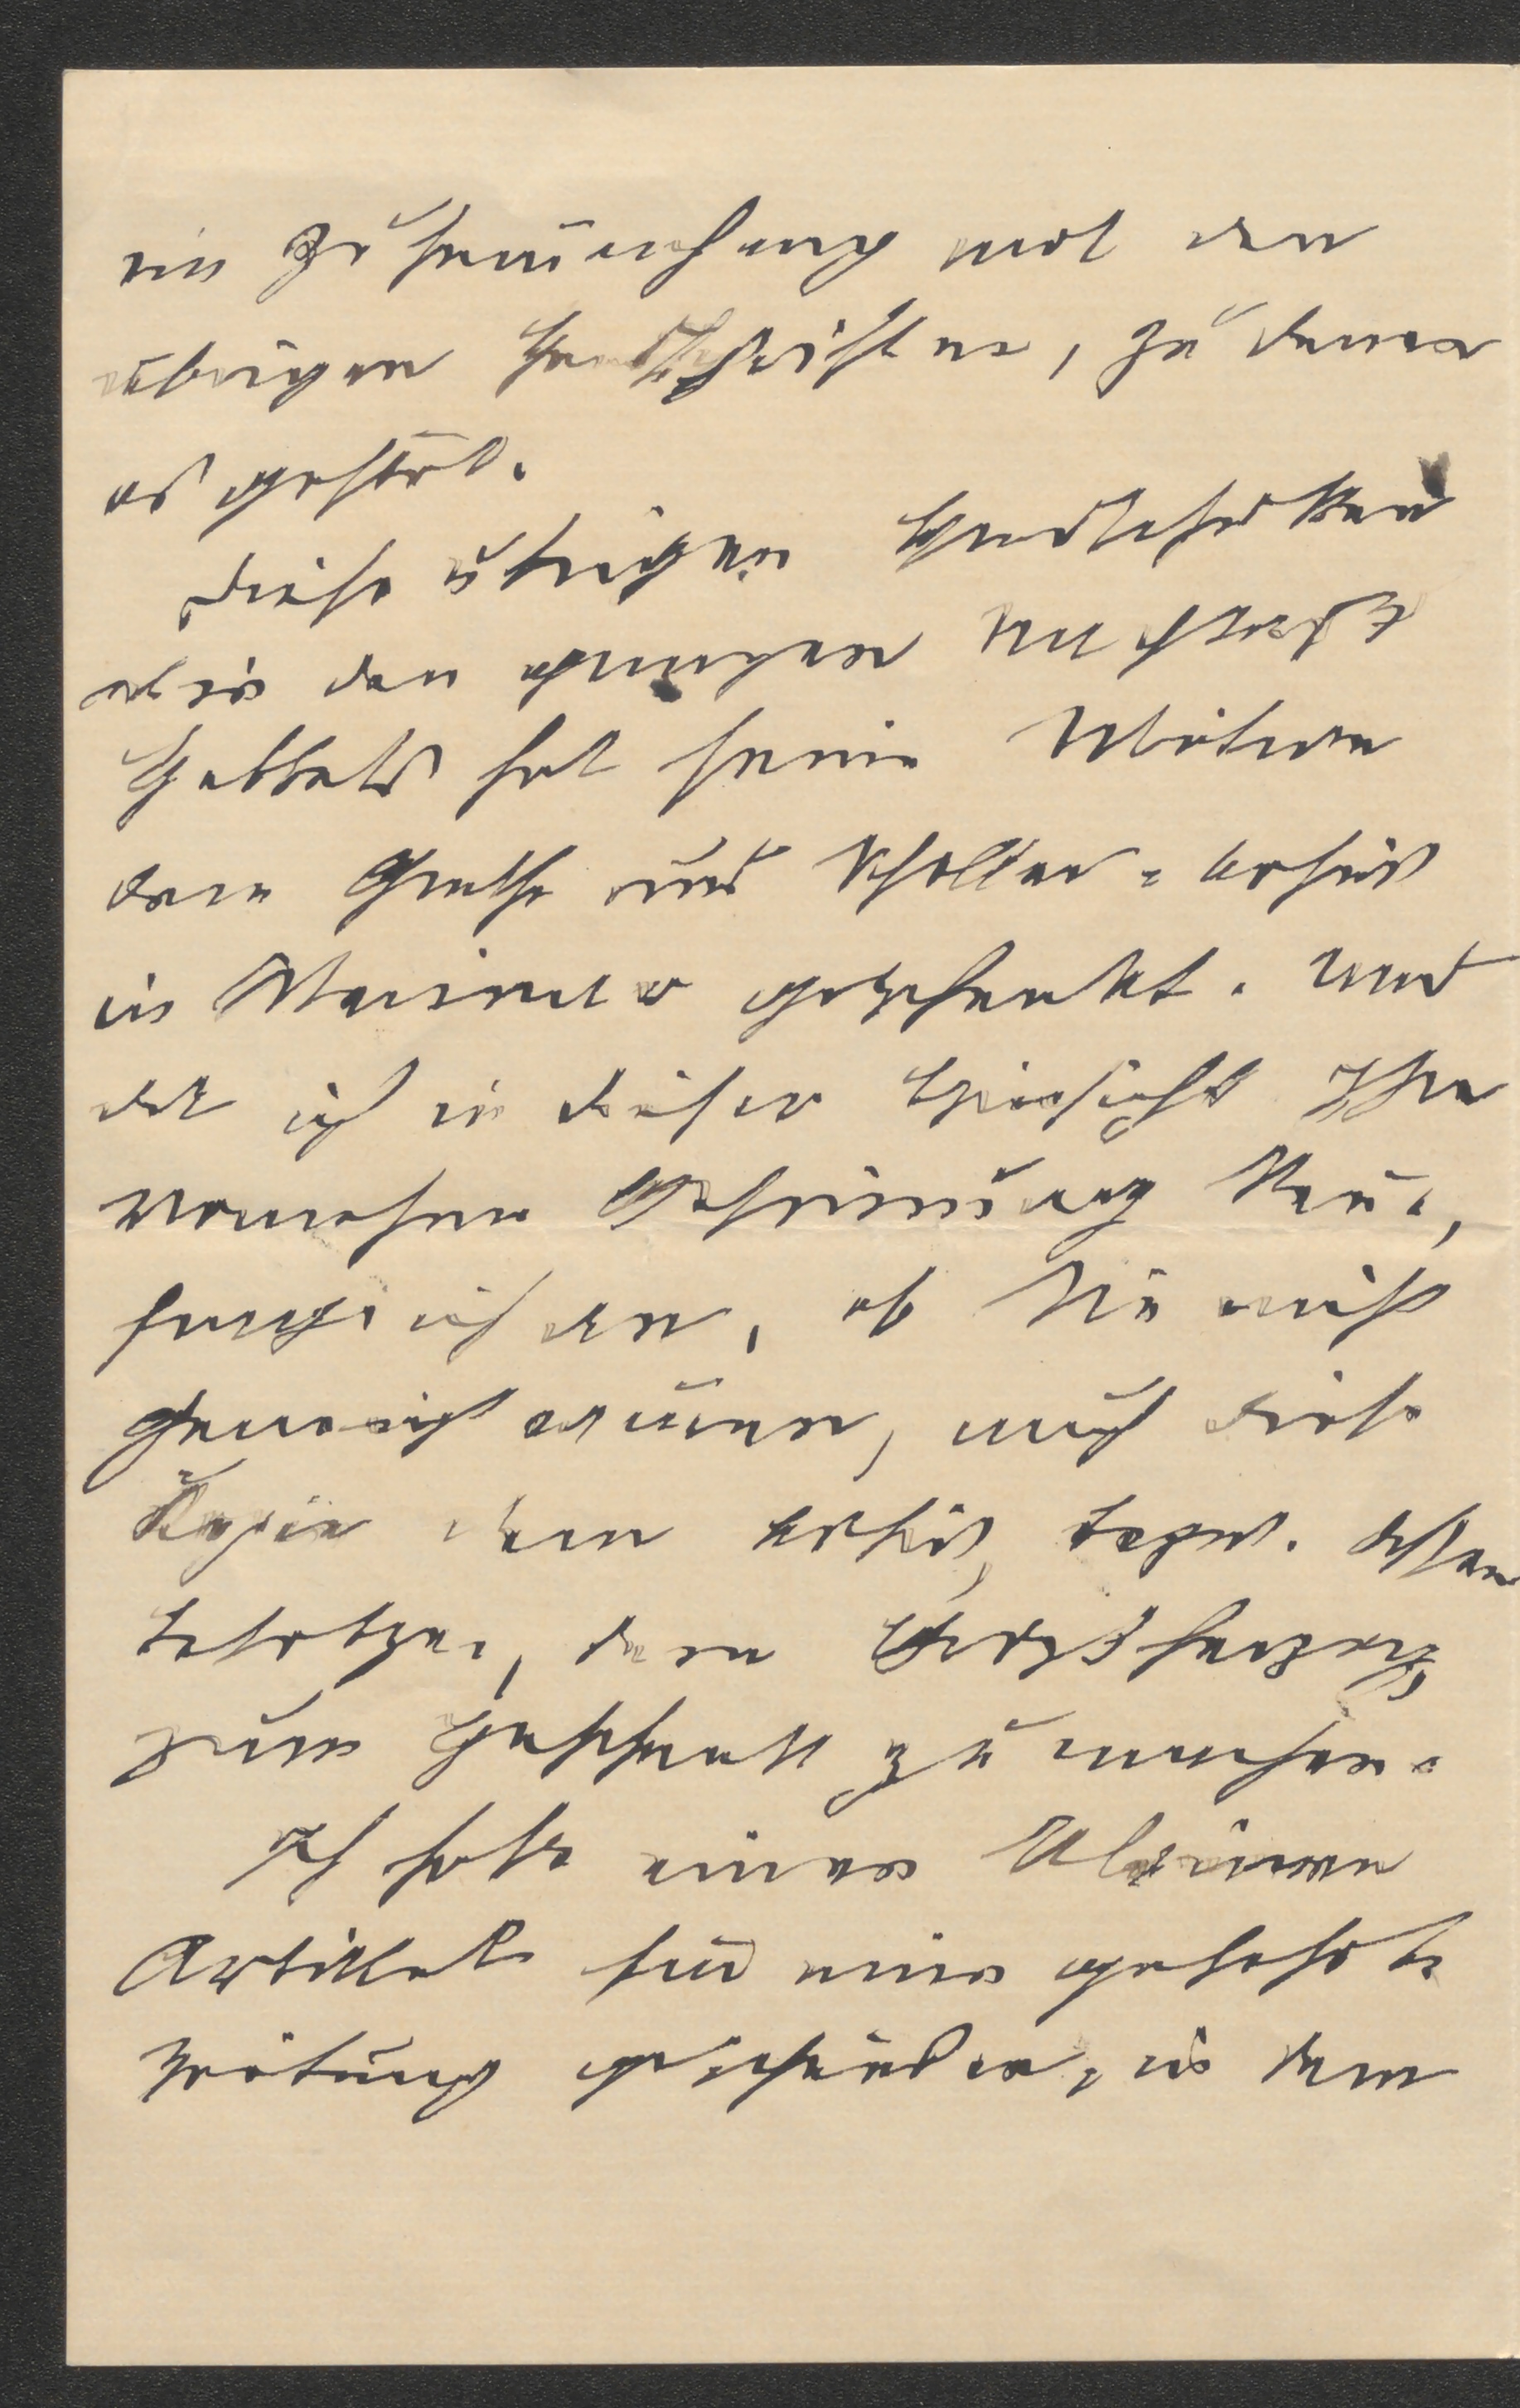 in Zusammenhang mit den
übrigen Handschriften, zu denen
es gehört.
Diese übrigen Handschriften
wie den ganzen Nachlaß
Hebbels hat seine Witwe
dem Goethe und Schiller-Archiv
in Weimar geschenkt. Und
da ich in dieser Hinsicht Ihre
vornehme Gesinnung kenne,
frage ich an, ob Sie nicht
geneigt wären, auch diese
Kopie dem Archiv, bezw. dessen
Besitzer, dem Großherzog
zum Geschenk zu machen.
Ich habe einen kleinen
Artikel für eine gelehrte
Zeitung geschrieben, in dem